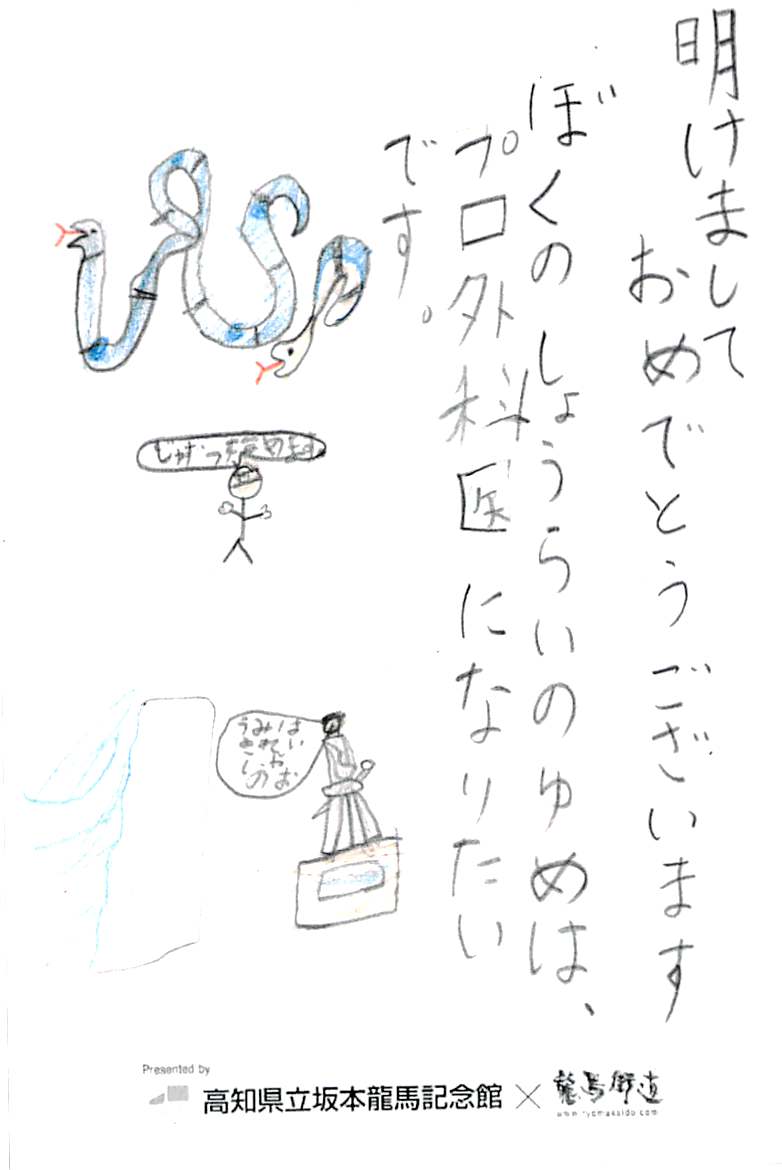 明けまして
おめでとうございます
ぼくのしょうらいのゆめは、
プロ外科医になりたい
です。
うみは
きれい
Presented by
高知県立坂本龍馬記念館 × 龍馬街道
www.ryomakaido.com